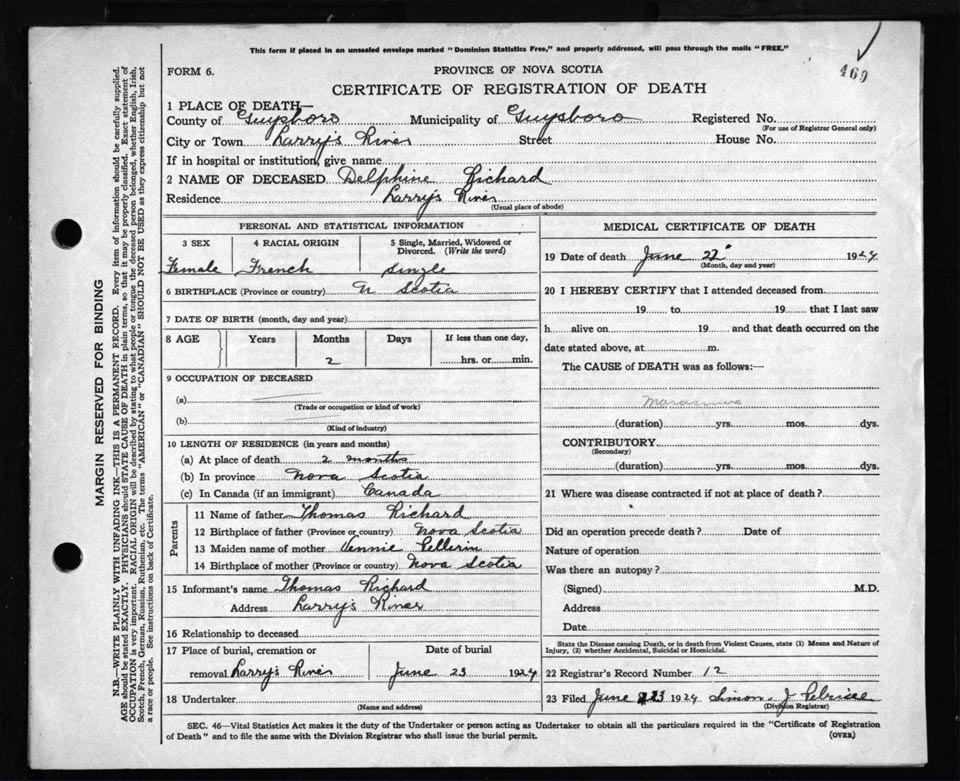 This form if placed in an unsealed envelope marked "Dominion Statistics Free," and properly addressed, will pass through the mails "FREE."
469
FORM 6.
PROVINCE OF NOVA SCOTIA
CERTIFICATE OF REGISTRATION OF DEATH
1 PLACE OF DEATH—
County of Guysboro Municipality of Guysboro Registered No.
(For use of Registrar General only)
City or Town Larry's River Street House No.
If in hospital or institution, give name
2 NAME OF DECEASED Delphine Richard
Residence Larry's River
(Usual place of abode)
PERSONAL AND STATISTICAL INFORMATION
3 SEX 4 RACIAL ORIGIN 5 Single, Married, Widowed or Divorced. (Write the word)
Female French Single
6 BIRTHPLACE (Province or country) N Scotia
7 DATE OF BIRTH (month, day and year)
8 AGE Years Months Days If less than one day,
2 hrs. or min.
9 OCCUPATION OF DECEASED
(a)
(Trade or occupation or kind of work)
(b)
(Kind of industry)
10 LENGTH OF RESIDENCE (in years and months)
(a) At place of death 2 months
(b) In province Nova Scotia
(c) In Canada (if an immigrant) Canada
Parents
11 Name of father Thomas Richard
12 Birthplace of father (Province or country) Nova Scotia
13 Maiden name of mother Pellerin
14 Birthplace of mother (Province or country) Nova Scotia
15 Informant's name Thomas Richard
Address Larry's River
16 Relationship to deceased
17 Place of burial, cremation or Date of burial
removal Larry's River June 23 1924
18 Undertaker
(Name and address)
MEDICAL CERTIFICATE OF DEATH
19 Date of death June 22 1924
(Month, day and year)
20 I HEREBY CERTIFY that I attended deceased from
19 to 19 that I last saw
h alive on 19 and that death occurred on the
date stated above, at m.
The CAUSE of DEATH was as follows:—
Marasmus
(duration) yrs. mos. dys.
CONTRIBUTORY
(Secondary)
(duration) yrs. mos. dys.
21 Where was disease contracted if not at place of death?
Did an operation precede death? Date of
Nature of operation
Was there an autopsy?
(Signed) M.D.
Address
Date
State the Disease causing Death, or in death from Violent Causes, state (1) Means and Nature of
Injury, (2) whether Accidental, Suicidal or Homicidal.
22 Registrar's Record Number 12
23 Filed June 23 1924 Simon J
(Division Registrar)
SEC. 46—Vital Statistics Act makes it the duty of the Undertaker or person acting as Undertaker to obtain all the particulars required in the "Certificate of Registration
of Death" and to file the same with the Division Registrar who shall issue the burial permit.
(OVER)
MARGIN RESERVED FOR BINDING
N.B.—WRITE PLAINLY WITH UNFADING INK—THIS IS A PERMANENT RECORD. Every item of information should be carefully supplied.
AGE should be stated EXACTLY. PHYSICIANS should STATE CAUSE OF DEATH in plain terms, so that it may be properly classified. Exact statement of
OCCUPATION is very important. RACIAL ORIGIN will be described by stating to what people or tongue the deceased person belonged, whether English, Irish,
Scotch, French, German, Russian, Ruthenian, etc. The terms "AMERICAN" or "CANADIAN" SHOULD NOT BE USED as they express citizenship but not
a race or people. See instructions on back of Certificate.